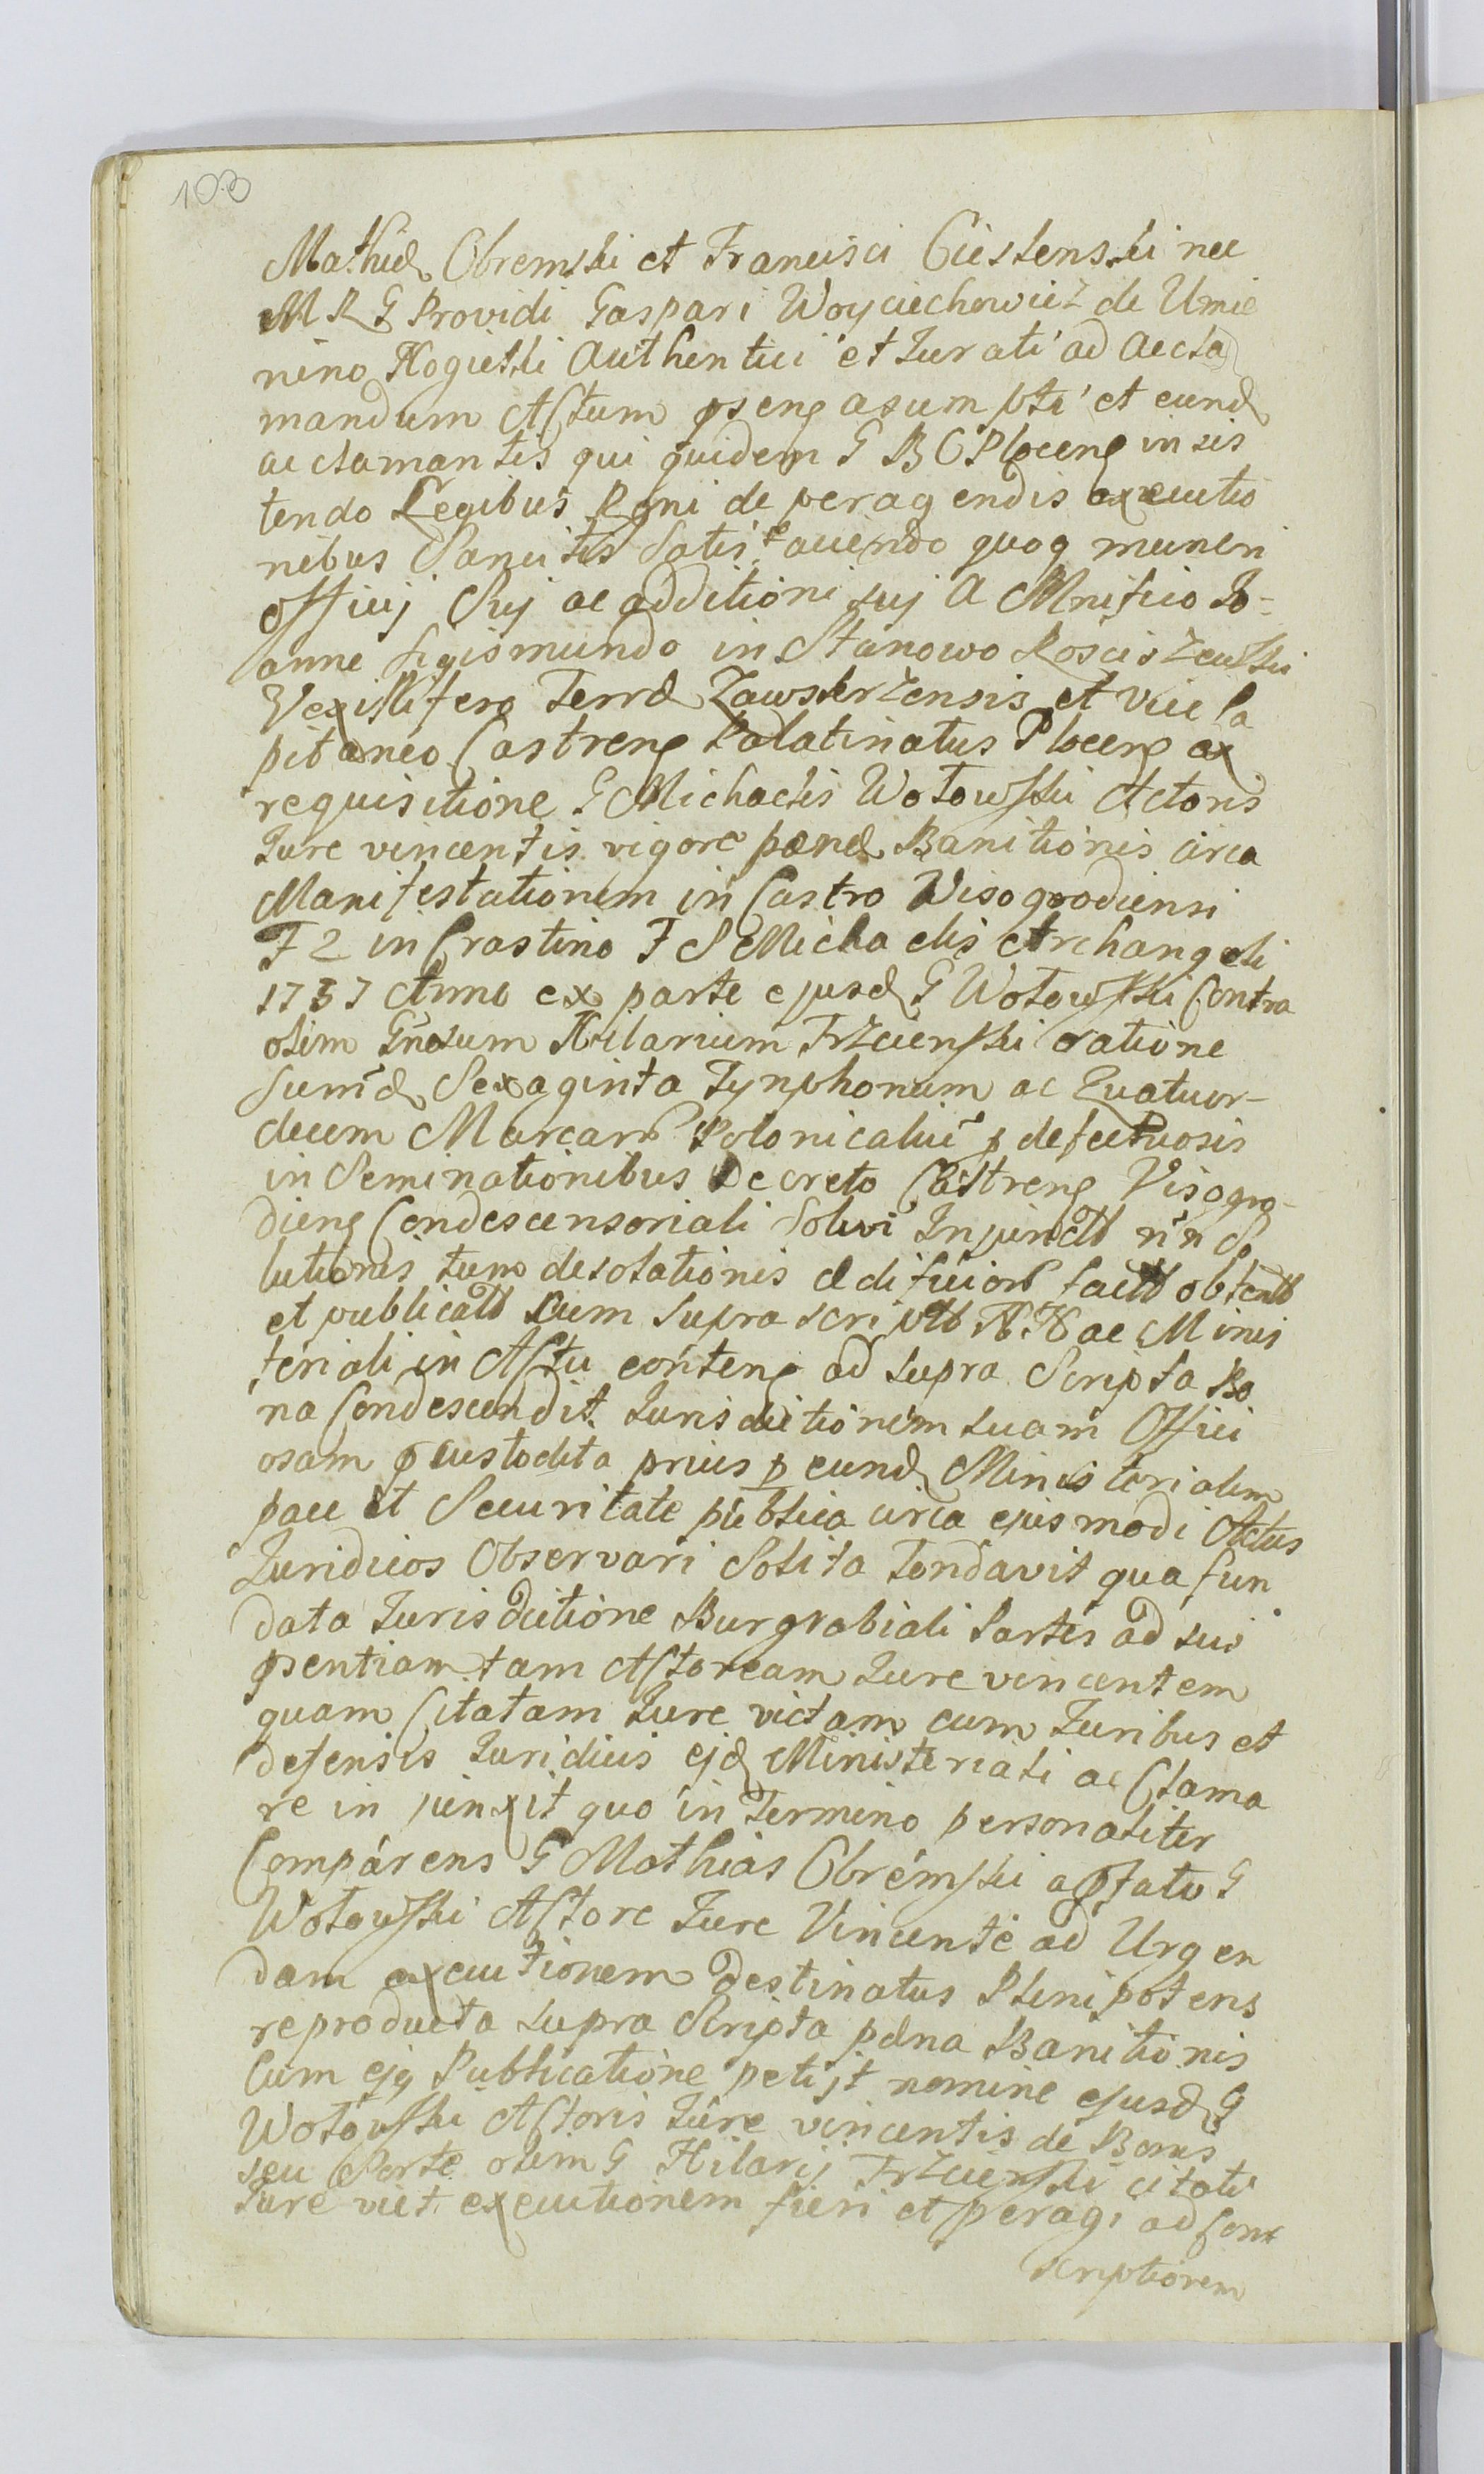 103
Mathiæ Obremski et Francisci Cieslenski nec
M R G Providi Gaspari Woyciechowicz de Umie
nino authentici et Jurati ad accla
mandum Actum psens asumpti et eund
acclamantis qui quidem G B C Plocens insis
tendo Legibus Rgni de peragendis executio
nibus Sancitis Satisfaciendo quoq muneri
officij Sui ac additioni suj A Mnifico Jo-
anne Sigismundo in Stanowo Rosciszewski
Vexillifero Terræ Zawskrzensis et vice Ca
pitaneo Castrens Palatinatus Plocens ex
requisitione G Michaelis Wołowski Actoris
Jure vincentis vigore pænæ Banitionis circa
Manifestationem in Castro Wisogrodiensi
F 2 in Crastino F S Michaelis Archangeli
1737 Anno ex parte ejusd G Wołowski Contra
olim Gnosum Hilarium Trzcienski ratione
Sum̄æ Sexaginta Tynphonum ac Quatuor-
decem Marcar Polonicaliū p defectuosis
in Seminationibus Decreto Castrens Visogro-
diens Condescensoriali Solvi Injunctt nn So
lutionis tum desolationis ædificior factt obtentt
et publicatt Cum supra scriptt NN ac Minis
teriali in Actu contens ad supra Scripta Bo
na Condescendit Jurisdictionem suam Offici
osam pcustodita prius p eund Ministerialem
pace et Securitate publica circa ejusmodi Actus
Juridicos Observari Solita fondavit qua fun
data Jurisdictione Burgrabiali Partes ad sui
psentiam tam Actoream Jure vincentem
quam Citatam Jure victam cum Juribus et
defensis Juridicis ejd Ministeriali acclama
re in junxit quo in Termino personaliter
Comparens G Mathias Obremski a pfato G
Wołowski Actore Jure Vincente ad Urgen
dam executionem destinatus Plenipotens
reproducta supra Scripta pæna Banitionis
Cum ejq Publicatione petijt nomine ejusd G
Wołowski Actoris Jure vincentis de Bonis
seu Sorte olim G Hilarij Trzcienski citati
Jure vict executionem fieri et peragi ad Con
scriptionem